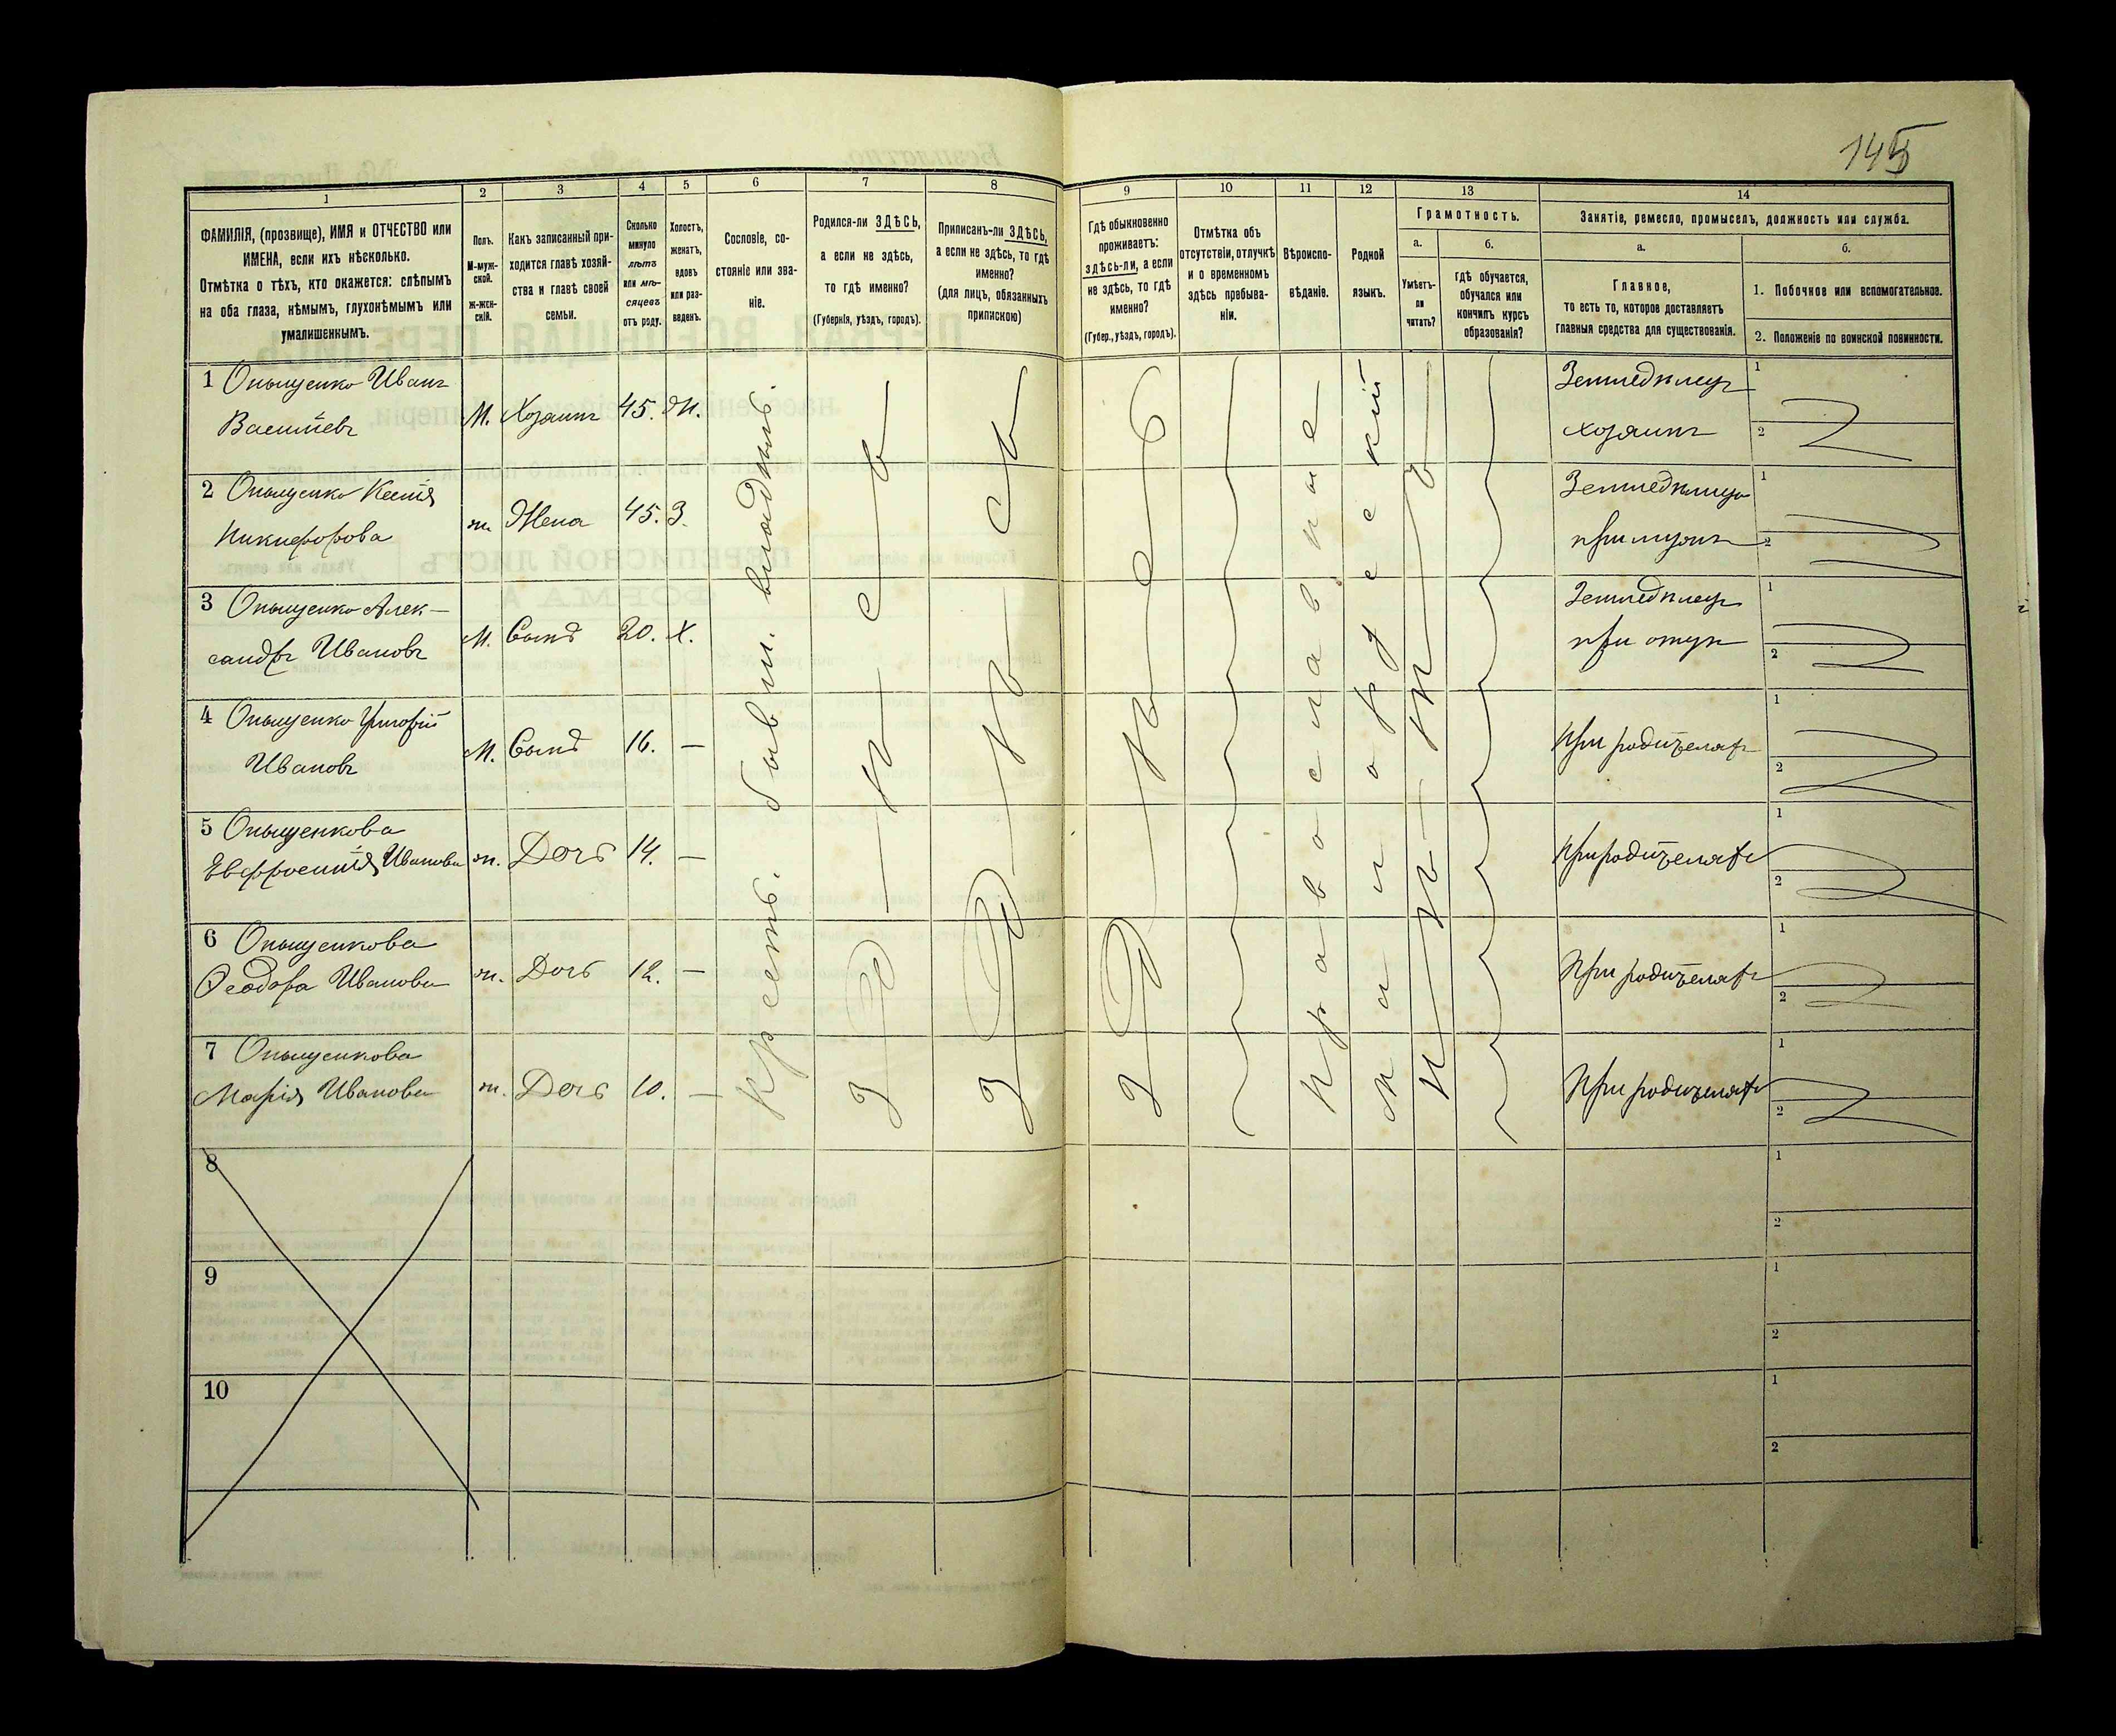 145
1 2 3 4 5 6 7 8 9 10 11 12 13 14
ФАМИЛІЯ, (прозвище), ИМЯ и ОТЧЕСТВО или
ИМЕНА, если ихъ нѣсколько.
Отмѣтка о тѣхъ, кто окажется: слѣпымъ
на оба глаза, нѣмымъ, глухонѣмымъ или
умалишеннымъ.
Полъ.
М-муж-
ской.
Ж-жен-
скій.
Какъ записанный при-
ходится главѣ хозяй-
ства и главѣ своей
семьи.
Сколько
минуло
лѣтъ
или мѣ-
сяцевъ
отъ роду.
Холостъ,
женатъ,
вдовъ
или раз-
веденъ.
Сословіе, со-
стояніе или зва-
ніе.
Родился-ли ЗДѢСЬ,
а если не здѣсь,
то гдѣ именно?
(Губернія, уѣздъ, городъ).
Приписанъ-ли ЗДѢСЬ,
а если не здѣсь, то гдѣ
именно?
(для лицъ, обязанныхъ
припискою)
Гдѣ обыкновенно
проживаетъ:
здѣсь-ли, а если
не здѣсь, то гдѣ
именно?
(Губер., уѣздъ, городъ).
Отмѣтка объ
отсутствіи, отлучкѣ
и о временномъ
здѣсь пребыва-
ніи.
Вѣроиспо-
вѣданіе.
Родной
языкъ.
Грамотность.
а.
Умѣетъ-
ли
читать?
б.
гдѣ обучается,
обучался или
кончилъ курсъ
образованія?
Занятіе, ремесло, промыселъ, должность или служба.
а.
Главное,
то есть то, которое доставляетъ
главныя средства для существованія.
б.
1. Побочное или вспомогательное.
2. Положеніе по воинской повинности.
1 Онищенко Иванъ
Васильевъ
М. Хозяинъ 45. Ж.
Земледѣлецъ
хозяинъ
1
2
2 Онищенко Ксенія
Никифорова
ж. Жена 45. З.
Земледѣлица
при мужѣ
1
2
3 Онищенко Алек-
сандръ Ивановъ
М. Сынъ 20. Х.
Земледѣлецъ
при отцѣ
1
2
4 Онищенко Григорій
Ивановъ
М. Сынъ 16. —
При родителяхъ
1
2
5 Онищенкова
Евфросинія Иванова
ж. Дочь 14. —
При родителяхъ
1
2
6 Онищенкова
Ѳеодора Иванова
ж. Дочь 12. —
При родителяхъ
1
2
7 Онищенкова
Марія Иванова
ж. Дочь 10. —
При родителяхъ
1
2
Крестъ. бывш. владѣльч.
Здѣсь
Здѣсь
Здѣсь
Православное
Малорусскій
8
1
2
9
1
2
10
1
2